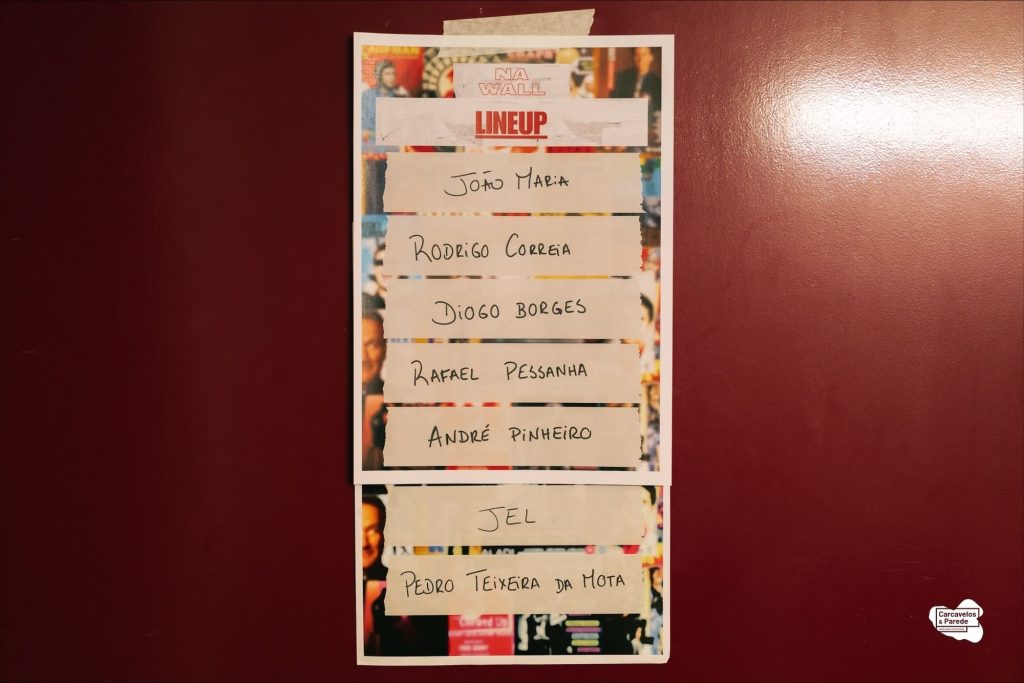 NA
WALL
LINEUP
João Maria
Rodrigo Correia
Diogo Borges
Rafael Pessanha
André Pinheiro
Jel
Pedro Teixeira da Mota
Carcavelos
& Parede